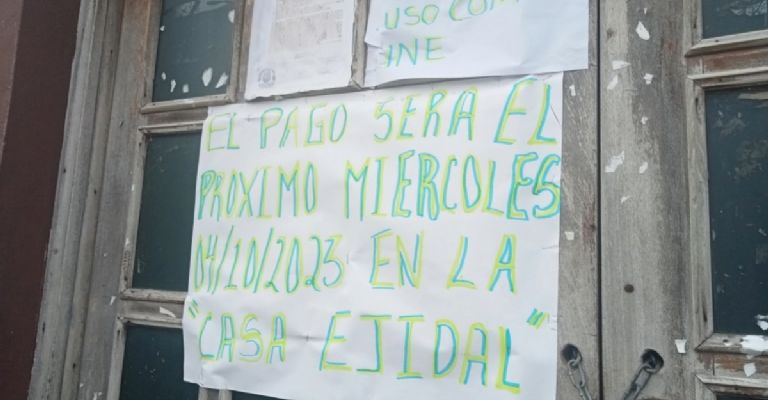 USO COM
INE
EL PAGO SERA EL
PROXIMO MIERCOLES
04/10/2023 EN LA
"CASA EJIDAL"